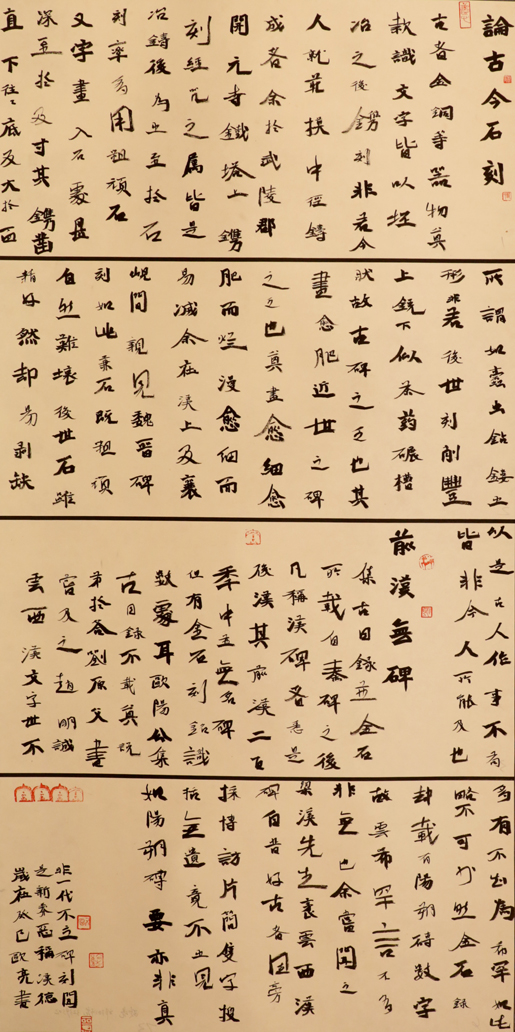 論古今石刻
古者金銅等器物其
款識文字皆以坯
冶之後鐫刻非若今
人就範模中徑鑄
成者余於武陵郡
開元寺鐵塔上鐫
刻經咒之屬皆是
冶鑄後為之至於石
刻率多用粗頑石
又字畫入石處甚
深至於及寸其鐫鑿
直下往往底反大於面
所謂如蠹蟲鉆鏤之
形非若後世刻削豐
上銳下似茶藥碾槽
狀故古碑之乏也其
畫愈肥近世之碑
之乏也其畫愈細愈
肥而烂沒愈細而
易滅余在漢上及襄
峴間親見魏晉碑
刻如此兼石既粗頑
自然難壞後世石雖
精好然却易剝缺
以是古人作事不苟
皆非今人所能及也
前漢無碑
集古目錄並金石
所載自秦碑之後
凡稱漢碑者悉是
後漢其前漢二百
年中並無名碑
但有金石刻銘識
數處耳歐陽公集
古目錄不載其説
第於答劉原父書
嘗及之趙明誠
雲西漢文字世不
多有不知為何罕如此
略不可曉然金石錄
却載有陽朔磚數字
故雲希罕言不多
非無也余嘗聞之
梁溪先生袤雲西漢
碑自昔好古者固旁
採博訪片簡隻字搜
括無遺竟不之見
如陽朔磚要亦非真
非一代不立碑刻聞
是新莽惡稱漢德
歲在癸巳歐亮書